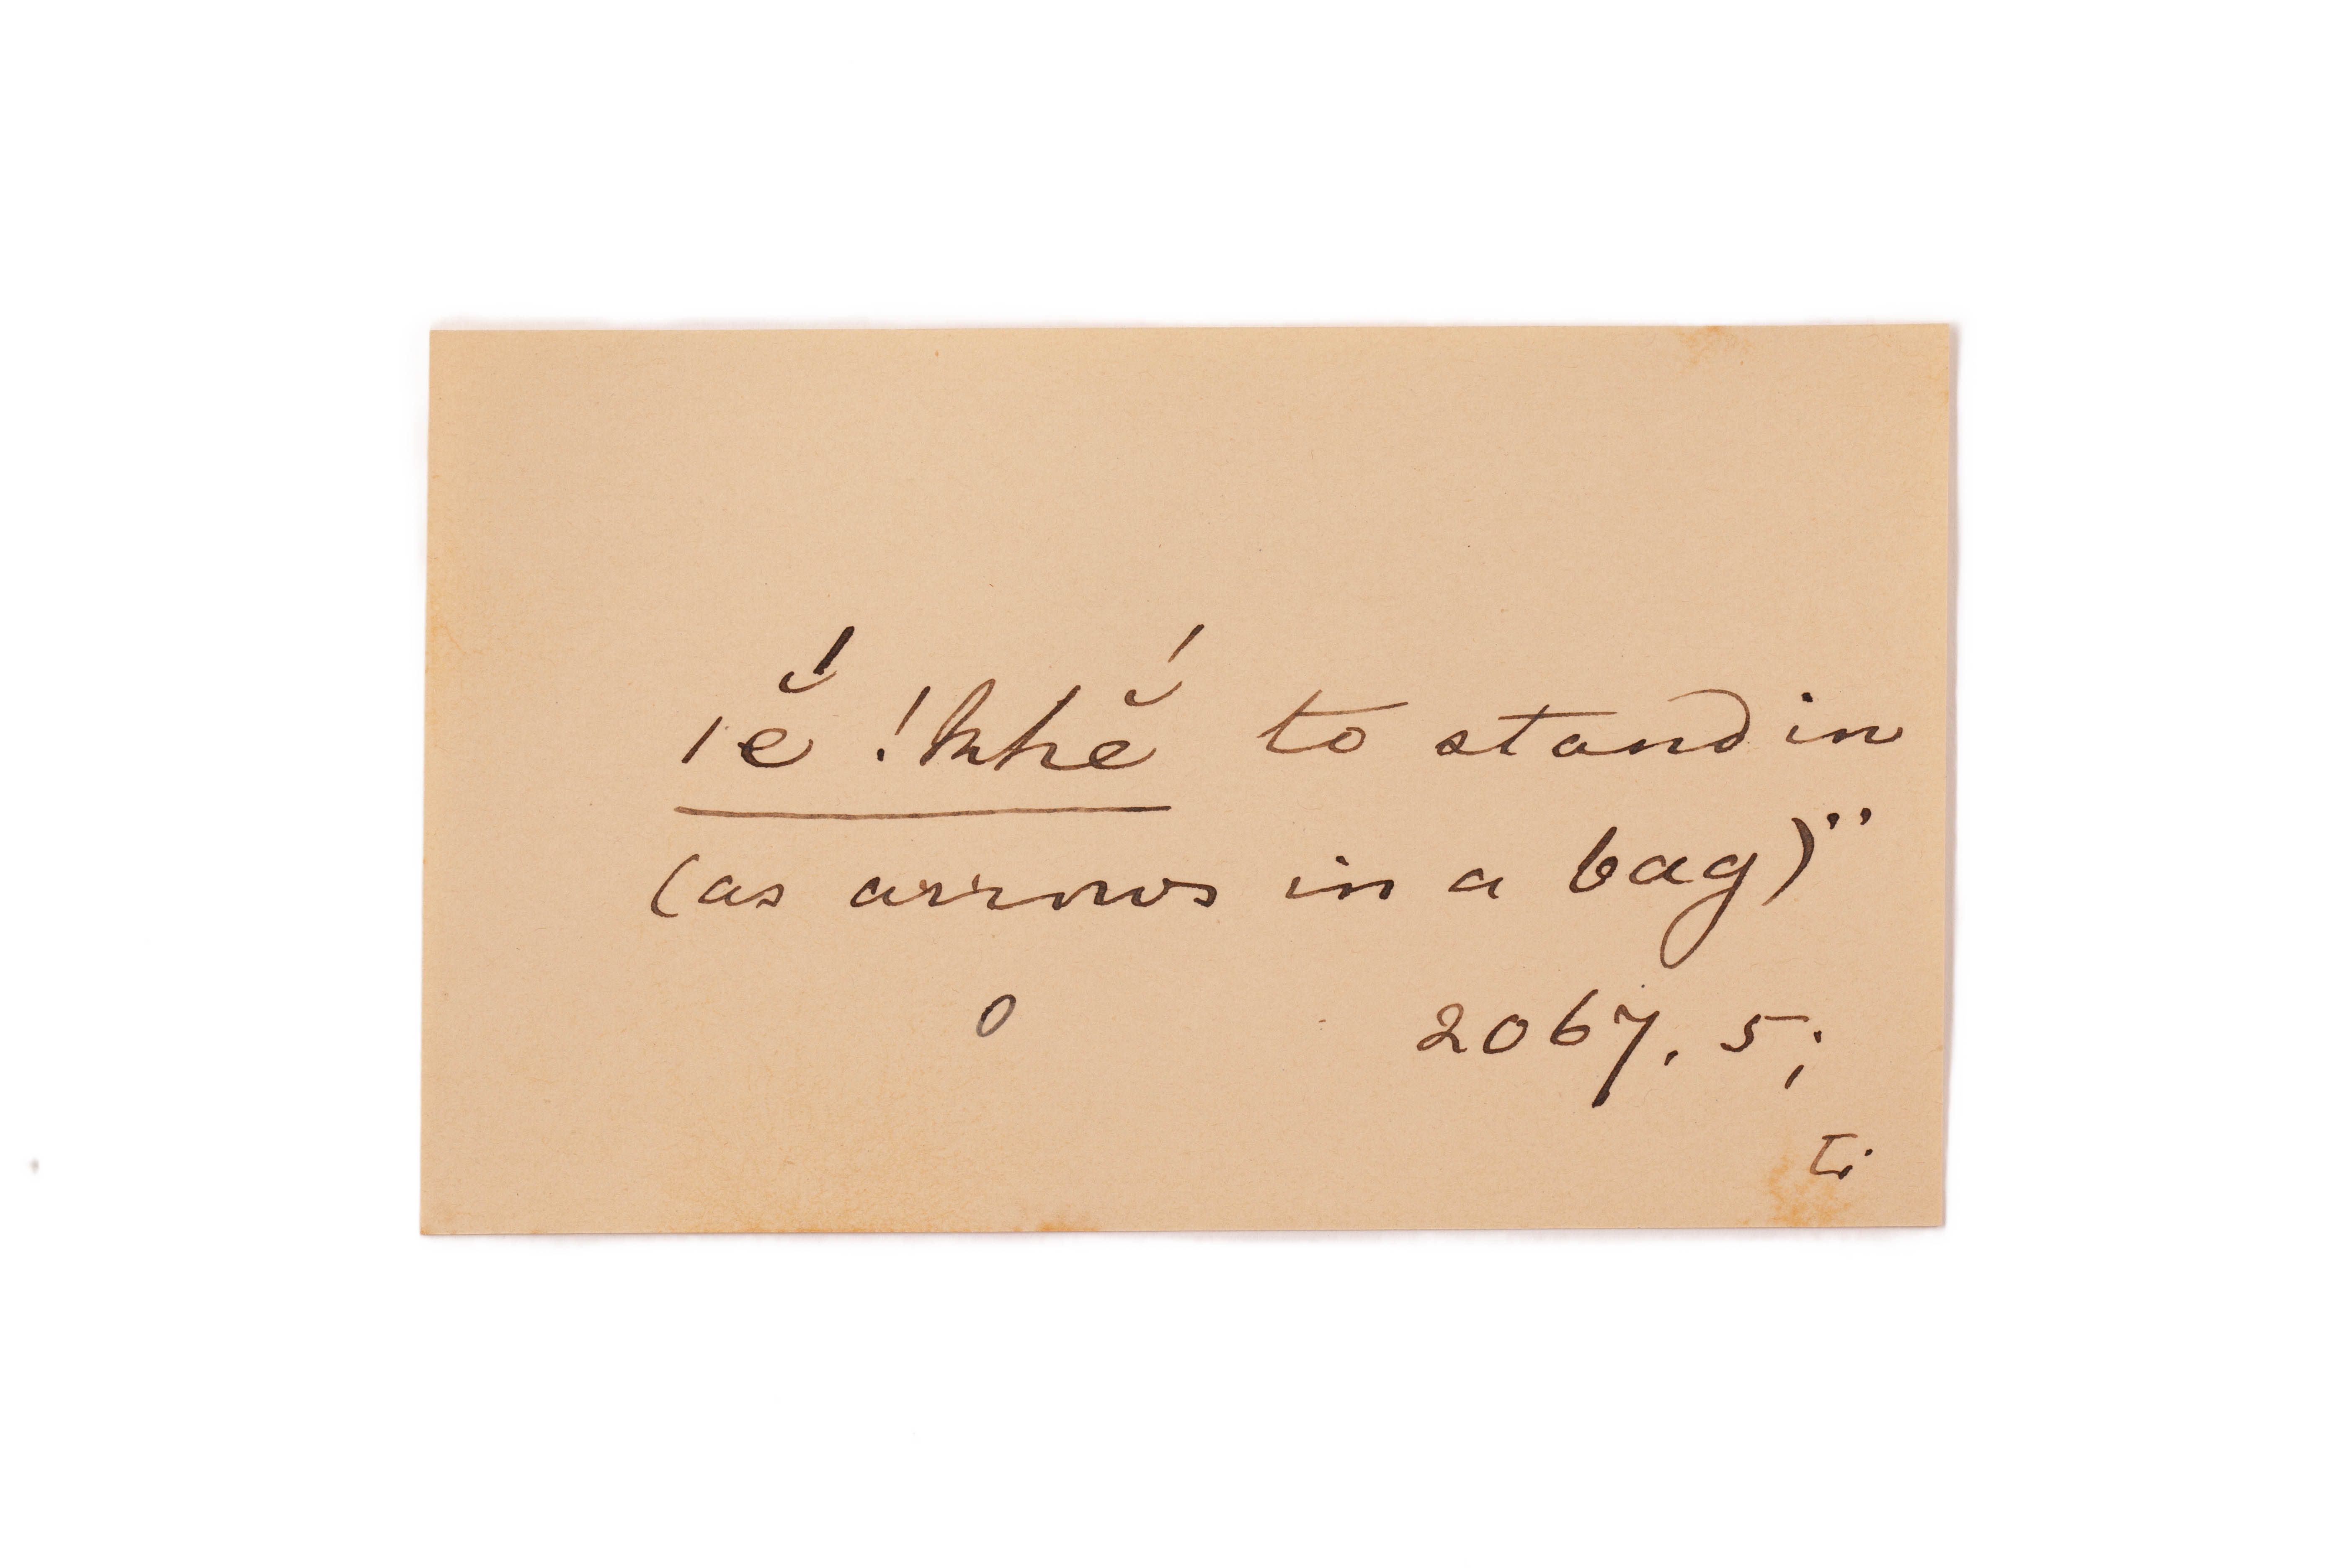 |ĕ́ !khĕ́ to stand in
(as arrows in a bag)"
0 2067. 5;